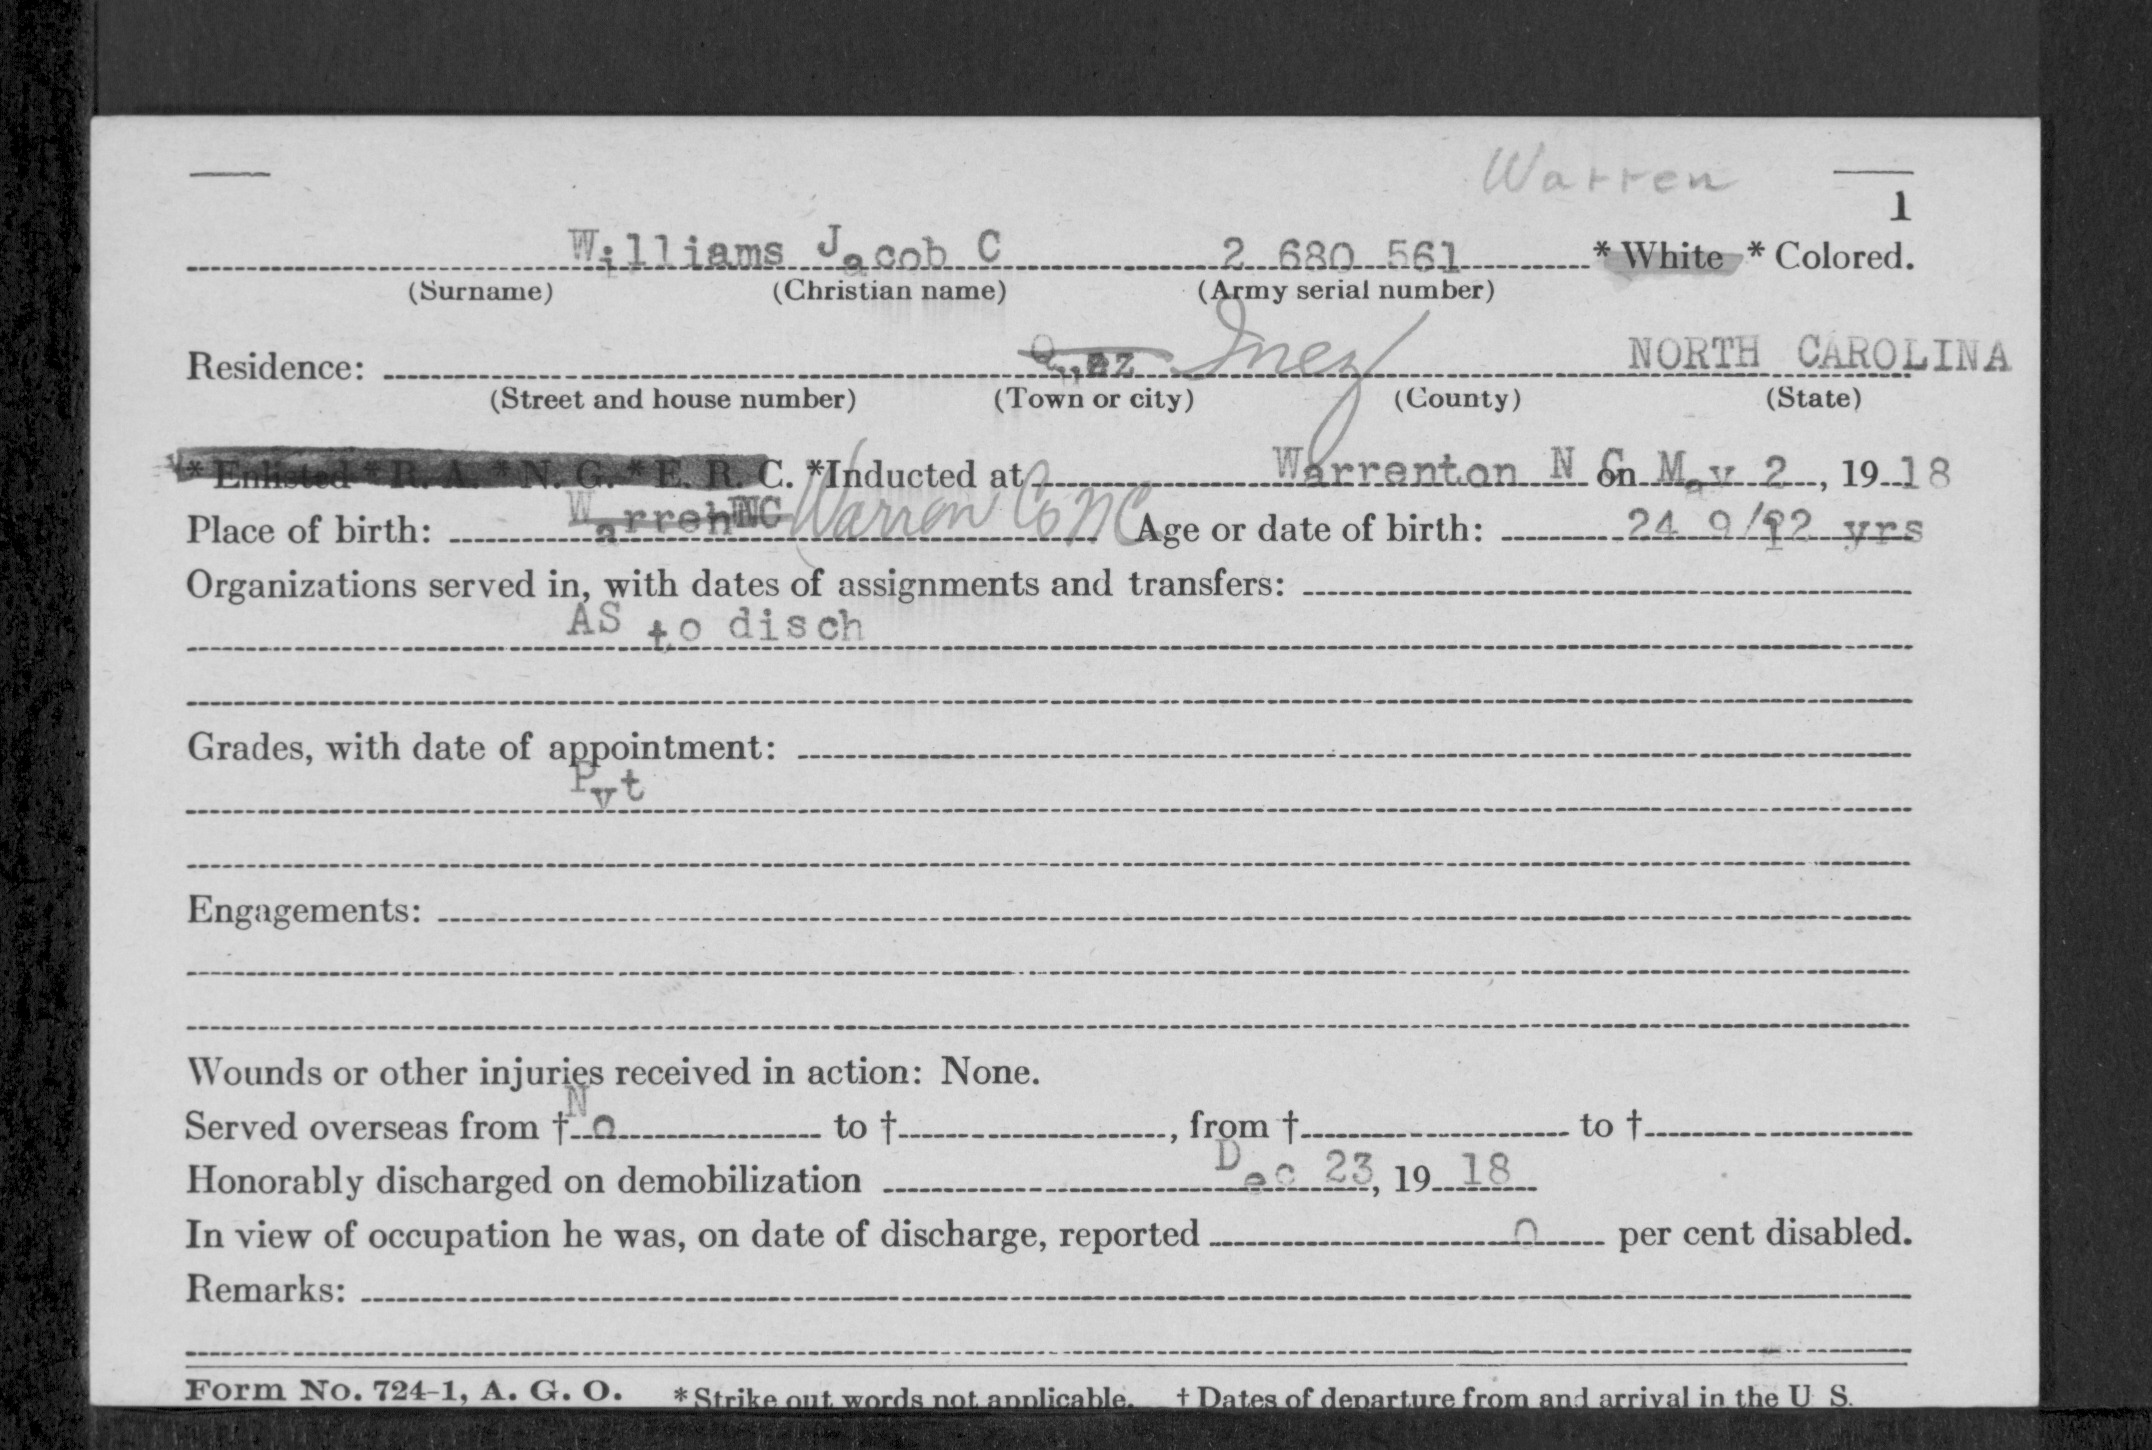 Warren
1
Williams Jacob C 2 680 561 * White * Colored.
(Surname) (Christian name) (Army serial number)
Residence: Inez NORTH CAROLINA
(Street and house number) (Town or city) (County) (State)
* Enlisted * R. A. * N. G. * E. R. C. *Inducted at Warrenton N C on May 2, 19 18
Place of birth: Warren NC Warren Co NC Age or date of birth: 24 9/12 yrs
Organizations served in, with dates of assignments and transfers:
AS to disch
Grades, with date of appointment:
Pvt
Engagements:
Wounds or other injuries received in action: None.
Served overseas from † No to †, from † to †
Honorably discharged on demobilization Dec 23, 19 18
In view of occupation he was, on date of discharge, reported 0 per cent disabled.
Remarks:
Form No. 724-1, A. G. O. * Strike out words not applicable. † Dates of departure from and arrival in the U S.